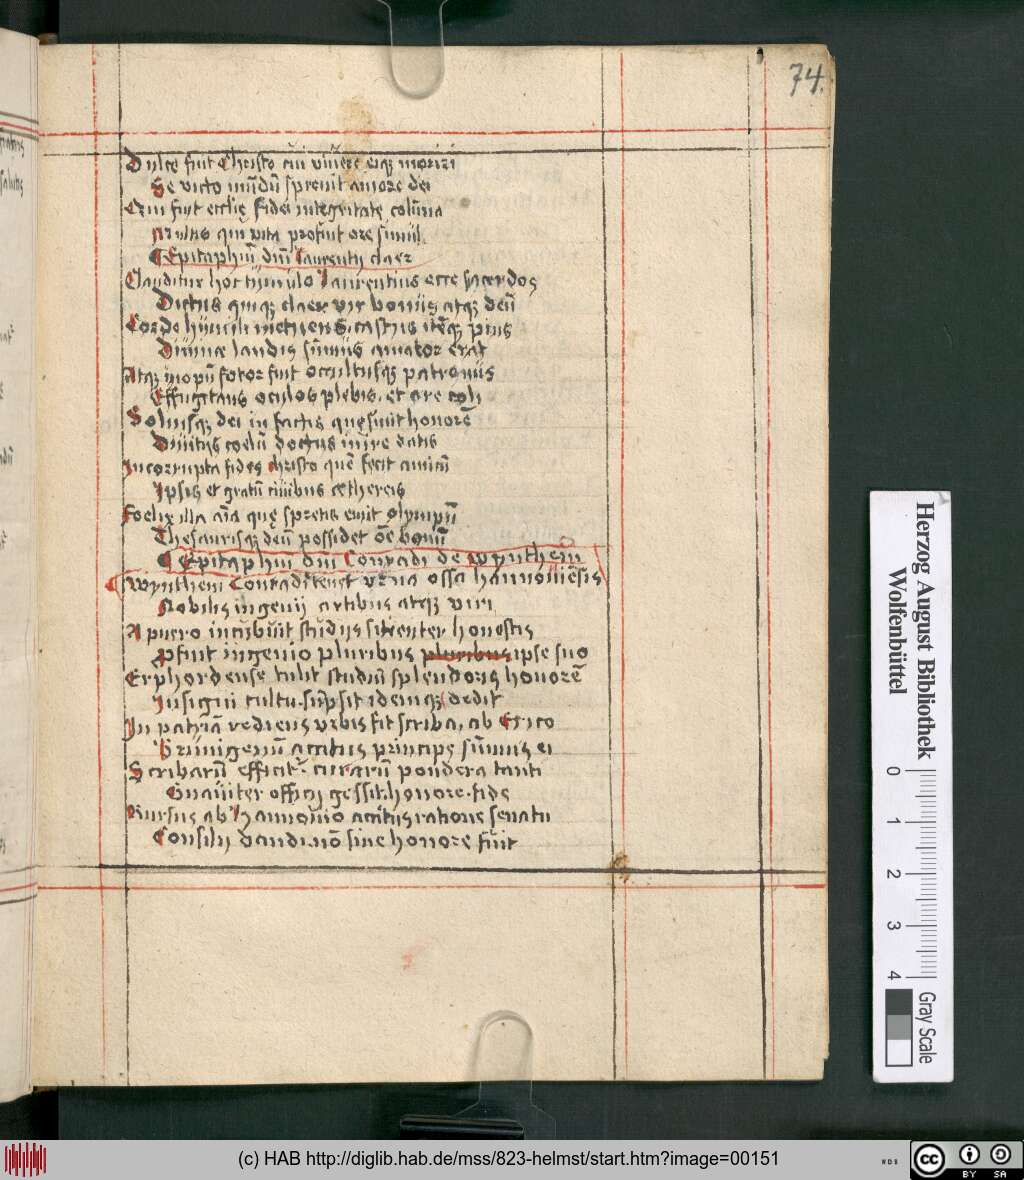 74.
Dulce fuit Christo cui vivere eiq; moriri
Se victo mūdū sprevit amore dei
Erm fuit ecclīe fidei integritate colūna
Multis qui vita profuit ore simul
Epitaphiū dm̄i Laurentij claer
Clauditur hoc tumulo Laurentius ecce sacerdos
Dictus quiq; claer vir bonus atq; deū
Corde humili metuens castus itēq; pius
Diuinæ laudis sūmus amator erat
Atq; inopū fotor fuit occultusq; patronus
Effugitans oculos plebis et ore coli
Soliusq; dei in factis quęsiuit honorē
Diuitijs coelū doctus inire datis
Incorrupta fides christo quē fecit amicū
Ipsis et gratū ciuibus æthereis
Foelix illa aīa quę spretis emit olympū
Thesaurisq; deū possidet oē bonū
Epitaphiū dm̄i Conradi de wyntheim
Wyntheim Conradi tenet vrna ossa hannouiēsis
Nobilis ingenij artibus atq; viri
A puero incubuit studijs sitienter honestis
Pfuit ingenio pluribus pluribus ipse suo
Erphordense tulit studiū splendoris honorē
Insigni cultu sūpsit idemq; dedit
In patriā rediens vrbis fit scriba, ab Erico
Brūnigenū accitus princips sūmus ei
Scribarū efficit: curarū pondera tanti
Gnauiter officij gessit honore fide
Rursus ab hannouio accitus ratione senatu
Consilij dandi nō sine honore fuit
Herzog August Bibliothek
Wolfenbüttel
0 1 2 3 4
Gray Scale
(c) HAB http://diglib.hab.de/mss/823-helmst/start.htm?image=00151
WDB
cc BY SA